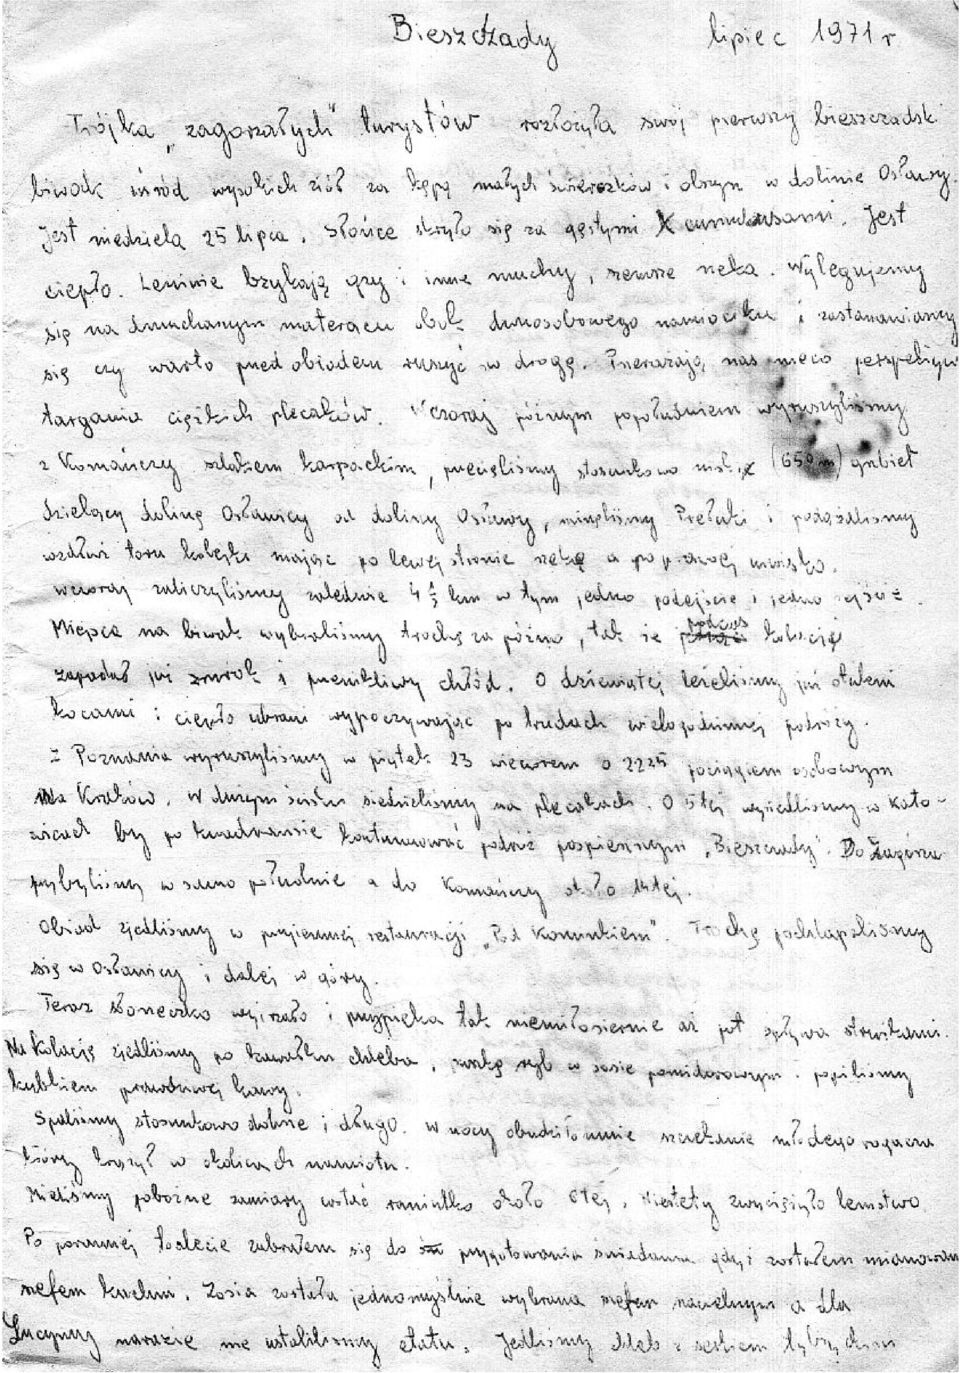 Bieszczady lipiec 1971 r.
Trójka „zagorzałych" turystów rozłożyła swój pierwszy bieszczadzki
biwak wśród wysokich ziół za kępą małych świerczków i olszyn w dolinie Osławy.
Jest niedziela 25 lipca. Słońce skryło się za gęstymi cumulusami. Jest
ciepło. Leniwie bzykają gzy i inne muchy, szemrze rzeka. Wylegujemy
się na dmuchanym materacu obok dwuosobowego namiociku i zastanawiamy
się czy warto przed obiadem ruszyć w drogę. Przerażają nas nieco perspektywy
targania ciężkich plecaków. Wczoraj późnym popołudniem wyruszyliśmy
z Komańczy szlakiem karpackim, przecięliśmy stosunkowo niski (650 m) grzbiet
dzielący dolinę Osławicy od doliny Osławy, minęliśmy Prełuki i podążaliśmy
wzdłuż toru kolejki mając po lewej stronie rzekę a po prawej urwisko.
wczoraj zaliczyliśmy zaledwie 4 km w tym jedno podejście i jedno zejście.
Miejsce na biwak wybraliśmy trochę za późno, tak że podczas kolacji
zapadał już zmrok i przenikliwy chłód. O dziewiątej leżeliśmy już otuleni
kocami i ciepło ubrani wypoczywając po trudach wielogodzinnej podróży.
Z Poznania wyruszyliśmy w piątek 23 wieczorem o 22²⁵ pociągiem osobowym
na Kraków. W dużym ścisku siedzieliśmy na plecakach. O 5tej wysiedliśmy w Kato-
wicach by po kwadransie kontynuować podróż pospiesznym „Bieszczady". Do Zagórza
przybyliśmy w samo południe a do Komańczy około 14tej.
Obiad zjedliśmy w przyjemnej restauracji „Pod Kominkiem". Trochę pochlapaliśmy
się w Osławicy i dalej w góry.
Teraz słoneczko wyjrzało i przypieka tak niemiłosiernie aż pot spływa strużkami.
Na kolację zjedliśmy po kawałku chleba, puszkę ryb w sosie pomidorowym popiliśmy
kubkiem prawdziwej kawy.
Spaliśmy stosunkowo dobrze i długo. W nocy obudziło mnie szczekanie młodego rogacza
który krążył w okolicach namiotu.
Mieliśmy pobożne zamiary wstać raniutko około 6tej. Niestety zwyciężyło lenistwo.
Po porannej toalecie zabrałem się do przygotowania śniadania gdyż zostałem mianowany
szefem kuchni. Zosia została jednomyślnie wybrana szefem naczelnym a dla
Lucyny narazie nie ustaliliśmy etatu. Jedliśmy chleb z serkiem